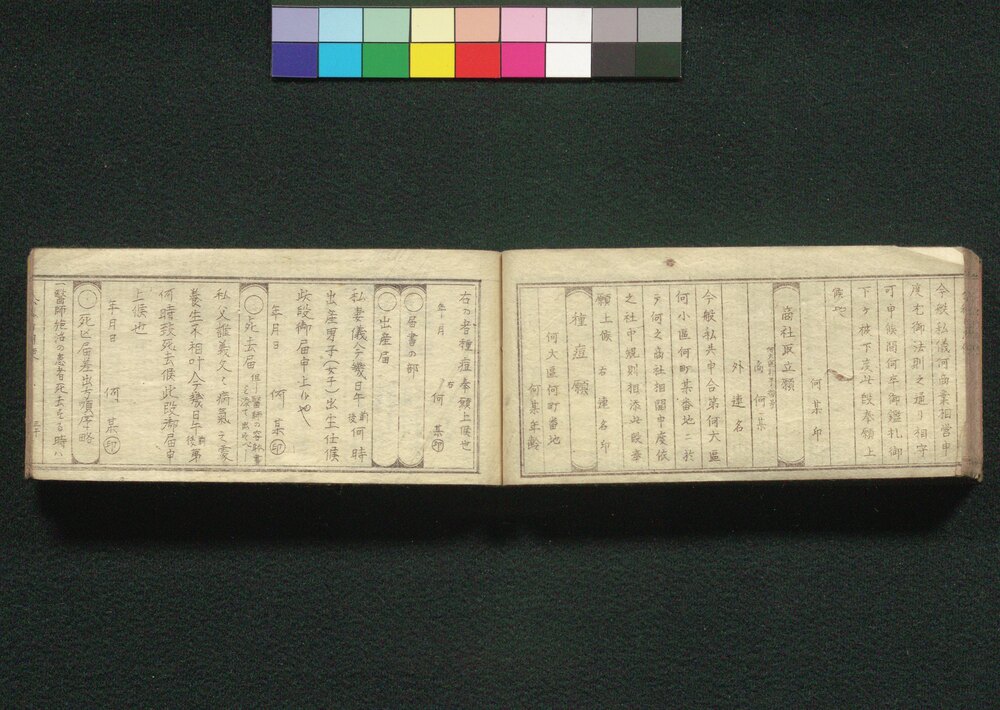 今般私儀何商業相営申
度尤御法則之通り相守
可申候間何卒御鑑札御
下ケ被下度此段奉願上
候也
何某印
商社取立願
商何某
外連名
今般私共申合第何大區
何小區何町某番地ニ於
テ何之商社相開申度依
之社中規則相添此段奉
願上候 右連名印
種痘願
何大區何町番地
何某年齢
右之者種痘奉願上候也
年月 右何某印
○届書の部
○出産届
私妻儀今幾日午前後何時
出産男子(女子)出生仕候
此段御届申上候也
年月日 何某印
○死去届 但シ醫師の容躰書を添て出すべし
私父誰義父ハ病氣之処
養生不相叶今幾日午前後第
何時致死去候此段御届申
上候也
年月日 何某印
○死亡届差出方順序略
醫師施治の患者死去する時ハ